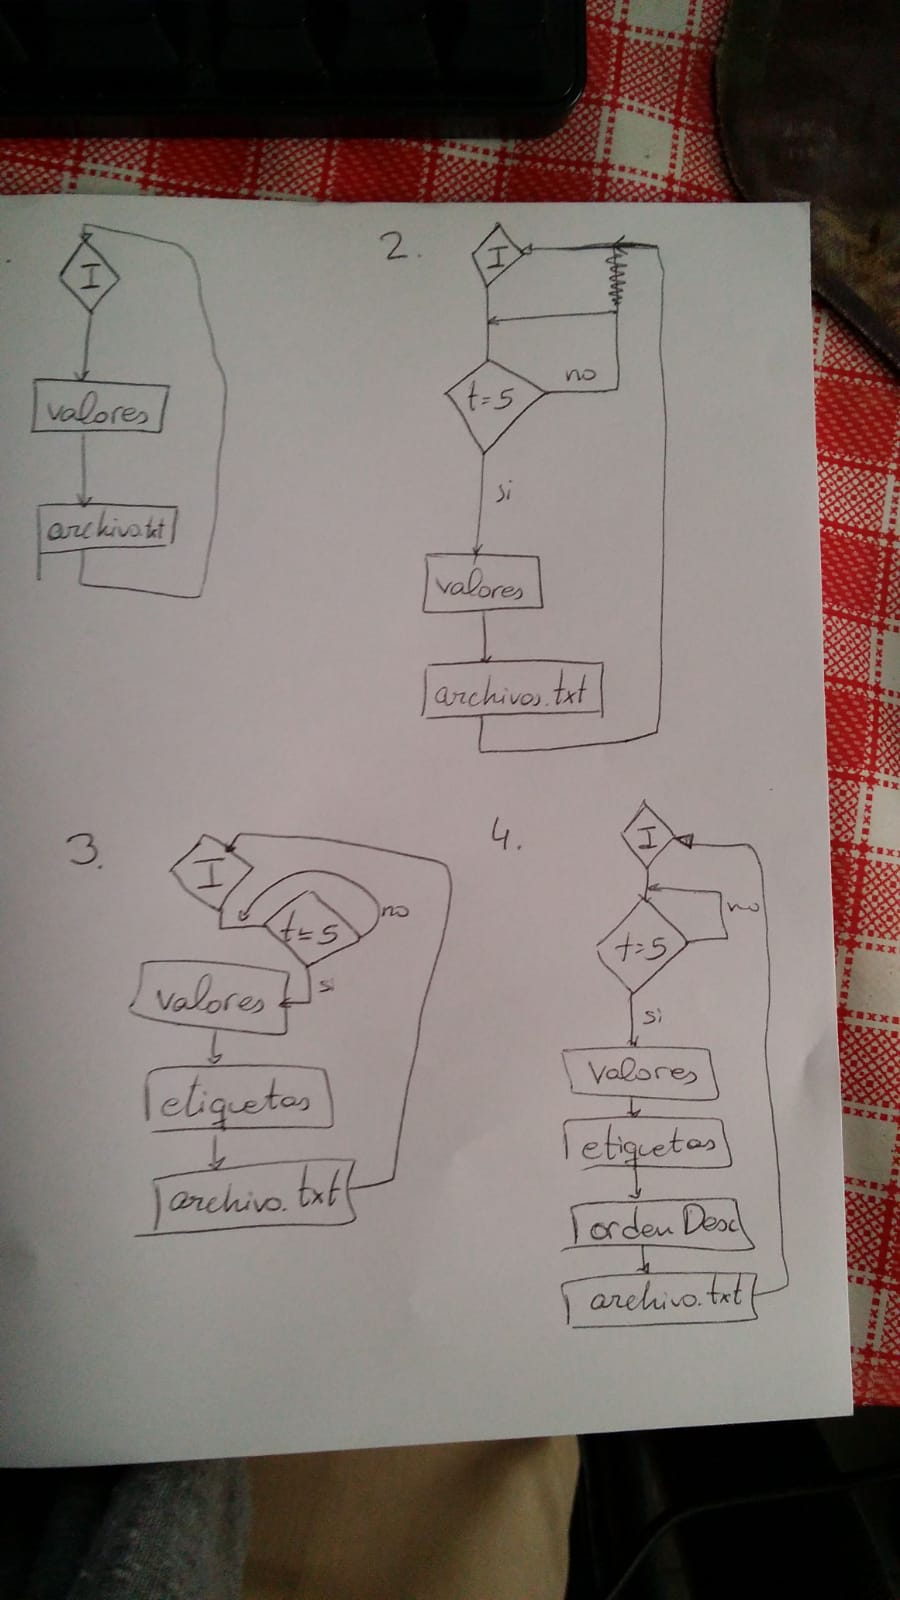 I
valores
archivo.txt
2.
I
t=5
no
si
valores
archivos.txt
3.
I
t=5
no
si
valores
etiquetas
archivo.txt
4.
I
t=5
no
si
valores
etiquetas
orden Desc
archivo.txt